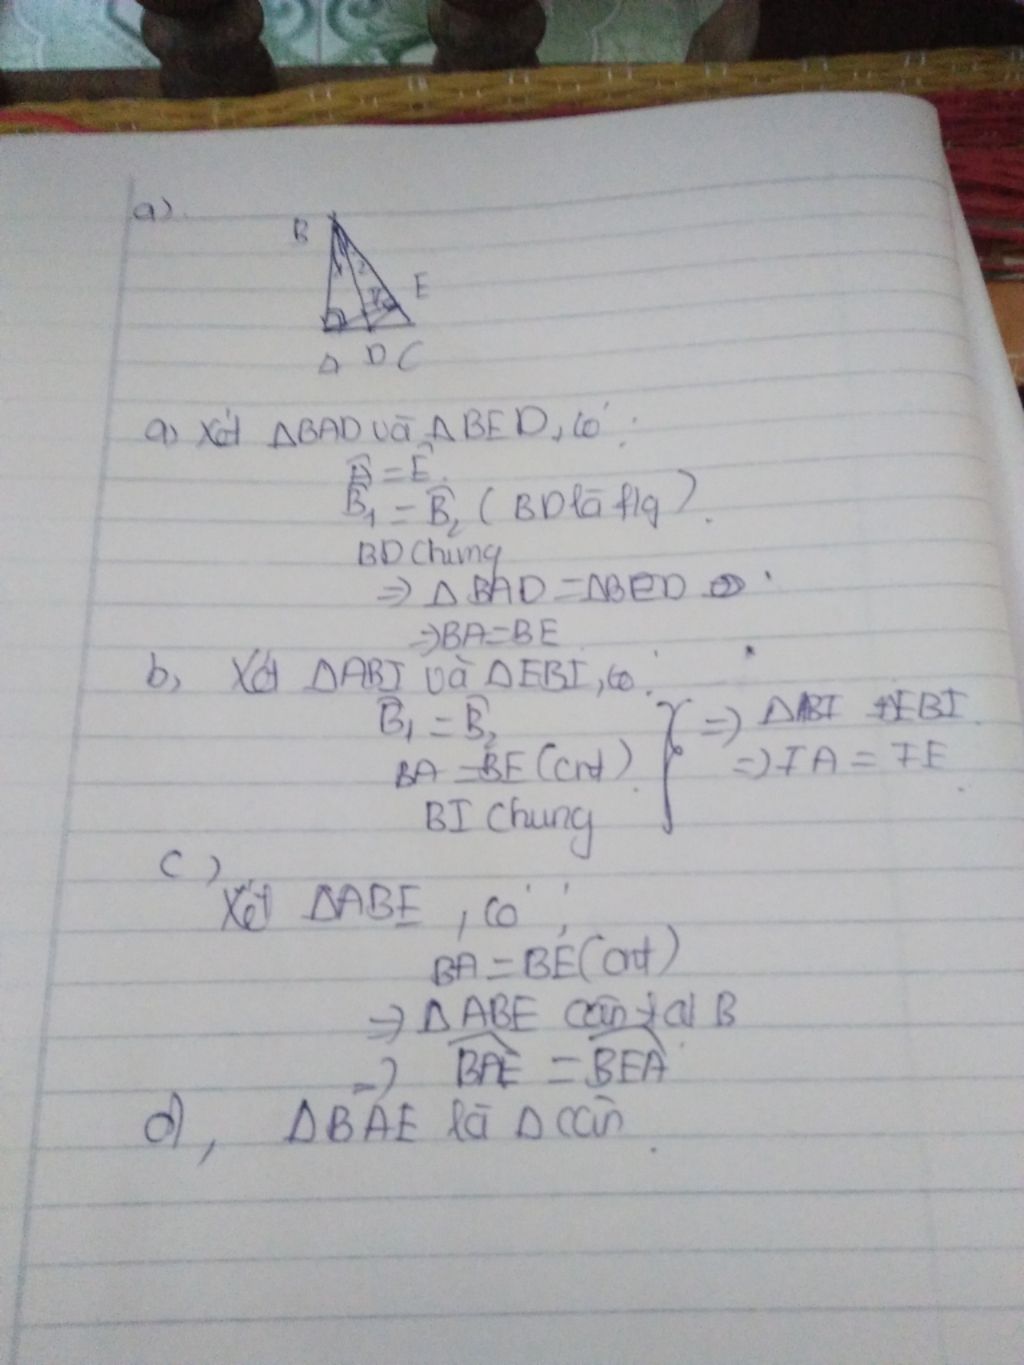 a)
B
E
1
2
I
A D C
a) Xét ΔBAD và ΔBED, có:
Â = Ê.
B̂₁ = B̂₂ ( BD là f/g ).
BD chung
=> ΔBAD = ΔBED
=> BA = BE
b, Xét ΔABI và ΔEBI, có:
B̂₁ = B̂₂
BA = BE (cmt)
BI chung
=> ΔABI = ΔEBI
=> IA = IE
c)
Xét ΔABE, có:
BA = BE (cmt)
=> ΔABE cân tại B
=> BAE = BEA
d), ΔBAE là Δ cân.